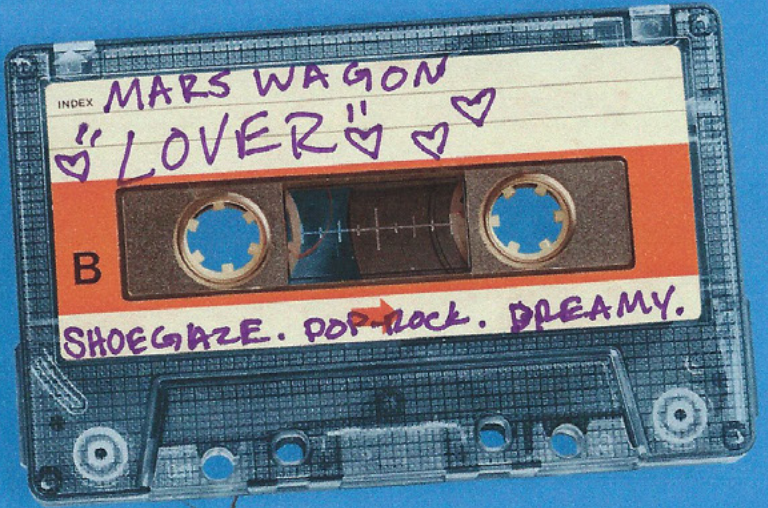 INDEX MARS WAGON
"LOVER"
B
SHOEGAZE. POP-ROCK. DREAMY.